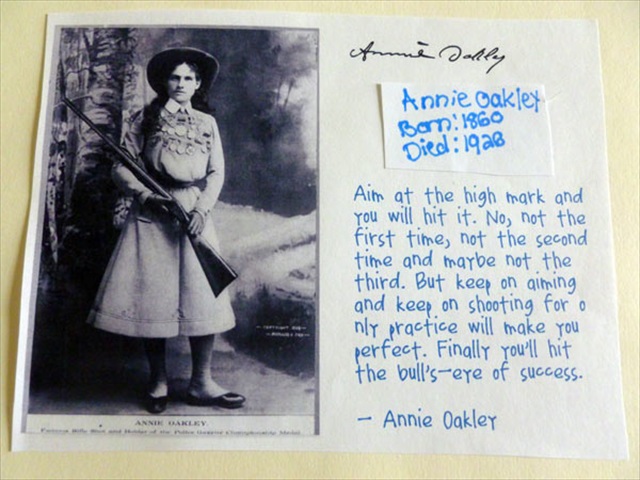 Annie Oakley
Annie Oakley
Born: 1860
Died: 1928
Aim at the high mark and
you will hit it. No, not the
first time, not the second
time and maybe not the
third. But keep on aiming
and keep on shooting for o
nly practice will make you
perfect. Finally you'll hit
the bull's-eye of success.
- Annie Oakley
COPYRIGHT
ANNIE OAKLEY
Famous Rifle Shot and Holder of the Police Gazette Championship Medal